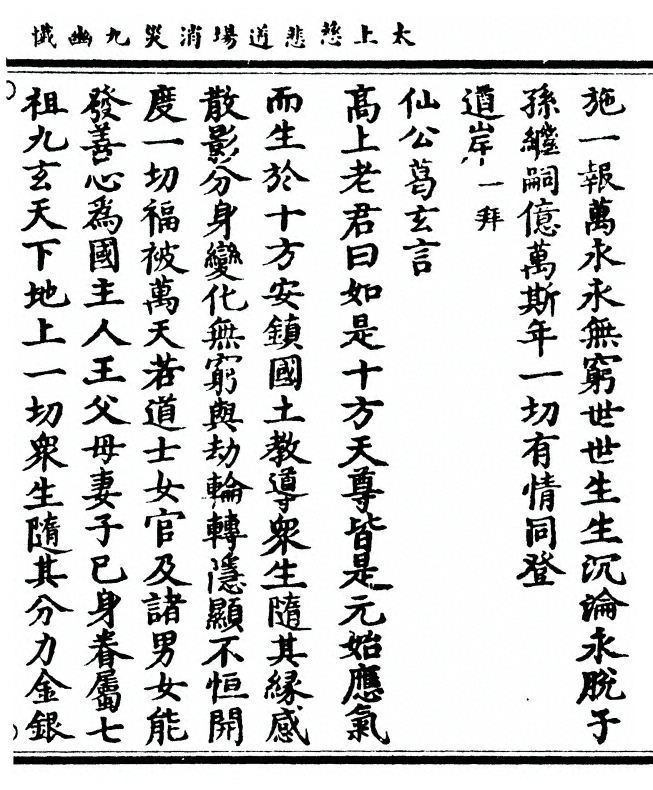 太上慈悲道場消災九幽懺
施一報萬永永無窮世世生生沉淪永脫子
孫繼嗣億萬斯年一切有情同登
道岸一拜
仙公葛玄言
高上老君曰如是十方天尊皆是元始應氣
而生於十方安鎮國土教導衆生隨其緣感
散影分身變化無窮與劫輪轉隱顯不恒開
度一切福被萬天若道士女官及諸男女能
發善心為國主人王父母妻子已身眷屬七
祖九玄天下地上一切衆生隨其分力金銀